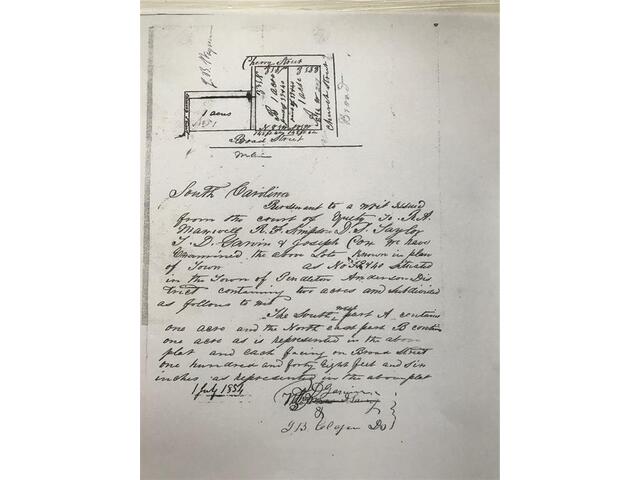 J B
Cherry Street
1 acre
1 acre
1 acre
Church Street
Broad
Broad Street
Main
South Carolina
Pursuant to a writ issued
from the court of Equity To R A
Maxwell R. F. Simpson D. S. Taylor
T. D. Garvin & Joseph Cox We have
Examined the above Lots Known in plan
of Town as No situated
in the Town of Pendleton Anderson Dis
trict containing two acres and Subdivided
as follows to wit
The South west part A contains
one acre and the North east part B contain
one acre as is represented in the above
plat and each facing on Broad Street
one hundred and forty Eight feet and Six
inches as represented in the above plat
1 July 1854
Garvin
&
J B Ds